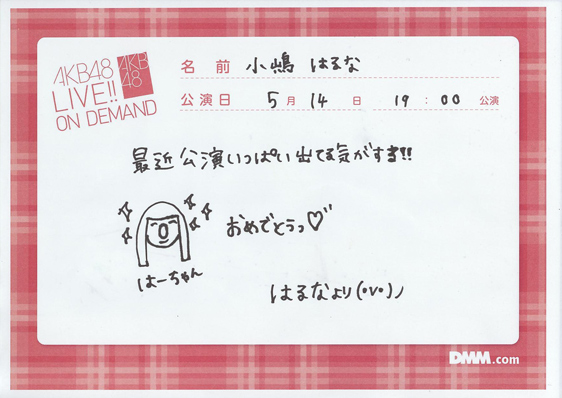 AKB48
LIVE!!
ON DEMAND
AKB
48
名前 小嶋 はるな
公演日 5月14日 19:00 公演
最近公演いっぱい出てる気がする!!
おめでとうっ♡
はーちゃん
はるなより(・v・)ノ
DMM.com